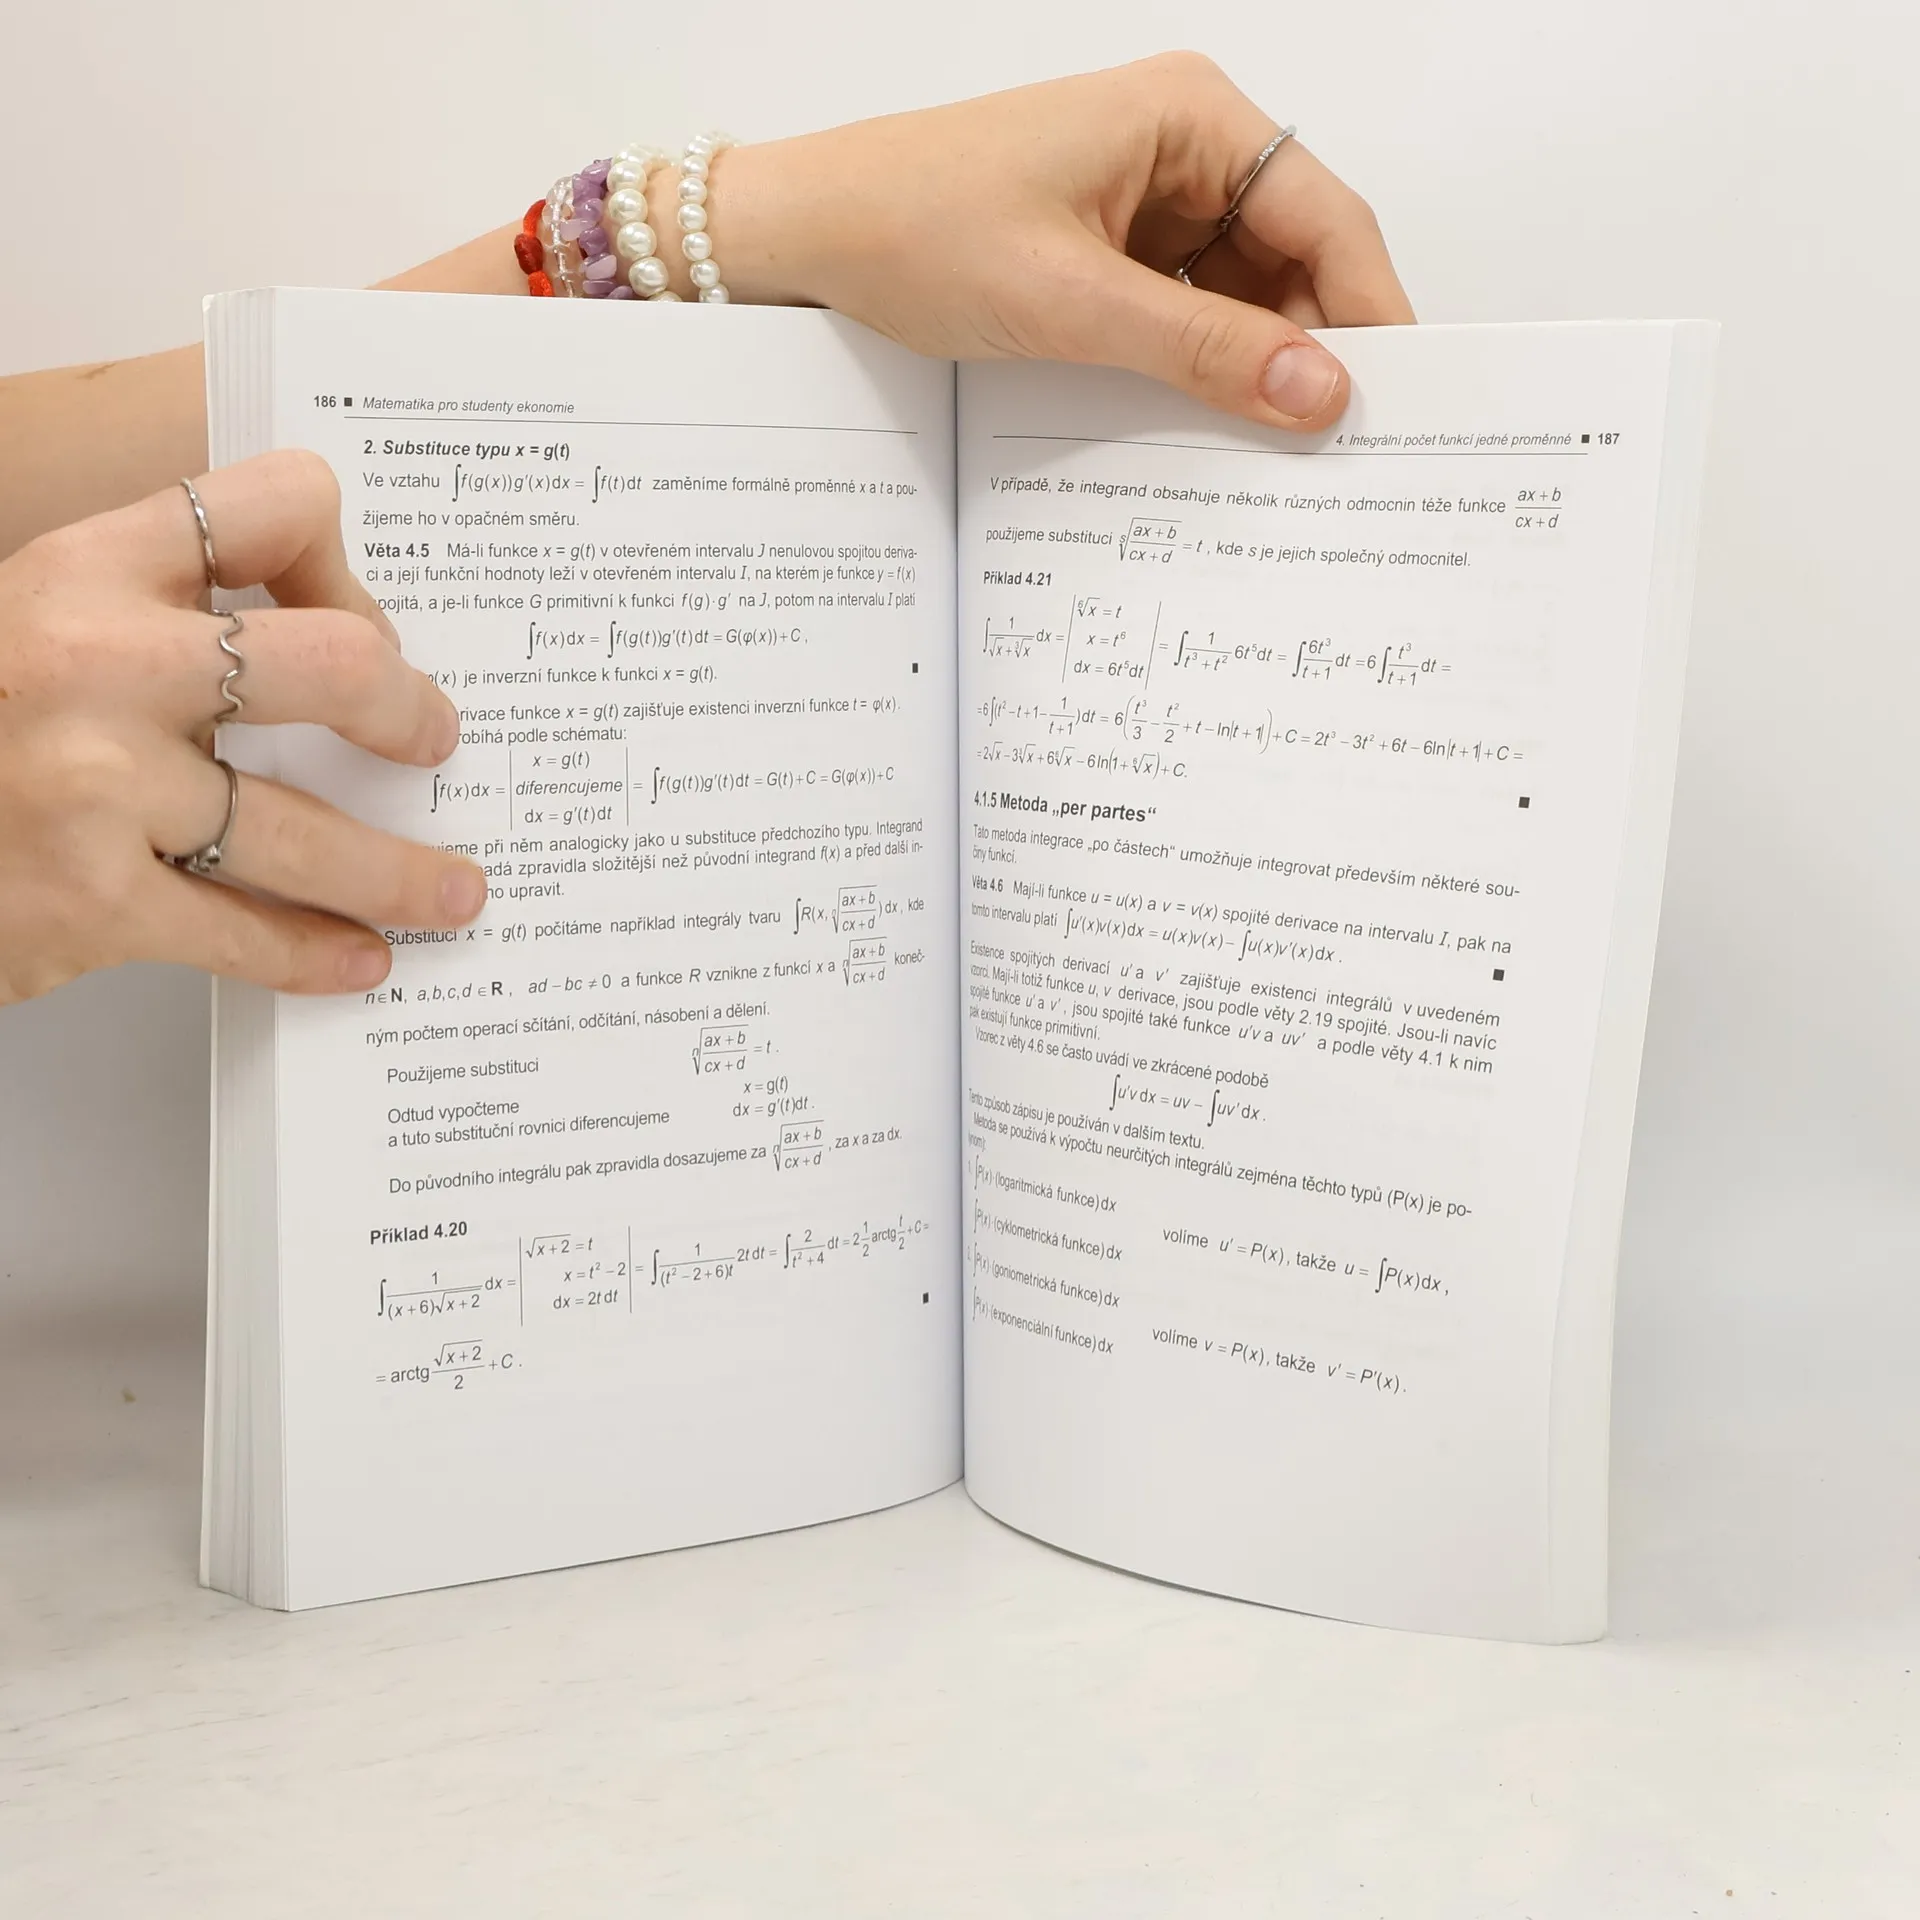 186 ■ Matematika pro studenty ekonomie
2. Substituce typu x = g(t)
Ve vztahu ∫f(g(x))g′(x)dx = ∫f(t)dt zaměníme formálně proměnné x a t a pou-
žijeme ho v opačném směru.
Věta 4.5 Má-li funkce x = g(t) v otevřeném intervalu J nenulovou spojitou deriva-
ci a její funkční hodnoty leží v otevřeném intervalu I, na kterém je funkce y = f(x)
pojitá, a je-li funkce G primitivní k funkci f(g)·g′ na J, potom na intervalu I platí
∫f(x)dx = ∫f(g(t))g′(t)dt = G(φ(x))+C,
φ(x) je inverzní funkce k funkci x = g(t). ■
rivace funkce x = g(t) zajišťuje existenci inverzní funkce t = φ(x).
robíhá podle schématu:
∫f(x)dx = | x = g(t) diferencujeme dx = g′(t)dt | = ∫f(g(t))g′(t)dt = G(t)+C = G(φ(x))+C
ujeme při něm analogicky jako u substituce předchozího typu. Integrand
adá zpravidla složitější než původní integrand f(x) a před další in-
ho upravit.
Substitucí x = g(t) počítáme například integrály tvaru ∫R(x, ⁿ√((ax+b)/(cx+d)))dx, kde
n∈N, a,b,c,d∈R, ad−bc≠0 a funkce R vznikne z funkcí x a ⁿ√((ax+b)/(cx+d)) koneč-
ným počtem operací sčítání, odčítání, násobení a dělení.
Použijeme substituci ⁿ√((ax+b)/(cx+d)) = t.
Odtud vypočteme x = g(t)
a tuto substituční rovnici diferencujeme dx = g′(t)dt.
Do původního integrálu pak zpravidla dosazujeme za ⁿ√((ax+b)/(cx+d)), za x a za dx.
Příklad 4.20
∫1/((x+6)√(x+2)) dx = | √(x+2) = t x = t²−2 dx = 2t dt | = ∫1/((t²−2+6)t) 2t dt = ∫2/(t²+4) dt = 2 1/2 arctg t/2 +C =
= arctg √(x+2)/2 +C. ■
4. Integrální počet funkcí jedné proměnné ■ 187
V případě, že integrand obsahuje několik různých odmocnin téže funkce (ax+b)/(cx+d)
použijeme substituci ˢ√((ax+b)/(cx+d)) = t, kde s je jejich společný odmocnitel.
Příklad 4.21
∫1/(√x+³√x) dx = | ⁶√x = t x = t⁶ dx = 6t⁵dt | = ∫1/(t³+t²) 6t⁵dt = ∫6t³/(t+1) dt = 6∫t³/(t+1) dt =
=6∫(t²−t+1−1/(t+1))dt = 6(t³/3−t²/2+t−ln|t+1|)+C = 2t³−3t²+6t−6ln|t+1|+C =
=2√x−3³√x+6⁶√x−6ln(1+⁶√x)+C. ■
4.1.5 Metoda „per partes“
Tato metoda integrace „po částech“ umožňuje integrovat především některé sou-
činy funkcí.
Věta 4.6 Mají-li funkce u = u(x) a v = v(x) spojité derivace na intervalu I, pak na
tomto intervalu platí ∫u′(x)v(x)dx = u(x)v(x)−∫u(x)v′(x)dx. ■
Existence spojitých derivací u′ a v′ zajišťuje existenci integrálů v uvedeném
vzorci. Mají-li totiž funkce u, v derivace, jsou podle věty 2.19 spojité. Jsou-li navíc
spojité funkce u′ a v′, jsou spojité také funkce u′v a uv′ a podle věty 4.1 k nim
pak existují funkce primitivní.
Vzorec z věty 4.6 se často uvádí ve zkrácené podobě
∫u′v dx = uv − ∫uv′dx.
Tento způsob zápisu je používán v dalším textu.
Metoda se používá k výpočtu neurčitých integrálů zejména těchto typů (P(x) je po-
lynom):
1. ∫P(x)·(logaritmická funkce)dx
∫P(x)·(cyklometrická funkce)dx volíme u′ = P(x), takže u = ∫P(x)dx,
2. ∫P(x)·(goniometrická funkce)dx
∫P(x)·(exponenciální funkce)dx volíme v = P(x), takže v′ = P′(x).